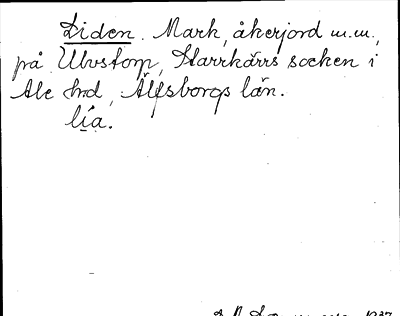 Liden. Mark, åkerjord m.m.,
på Ulvstorp, Starrkärrs socken i
Ale hrd, Älfsborgs län.
lía.
1937